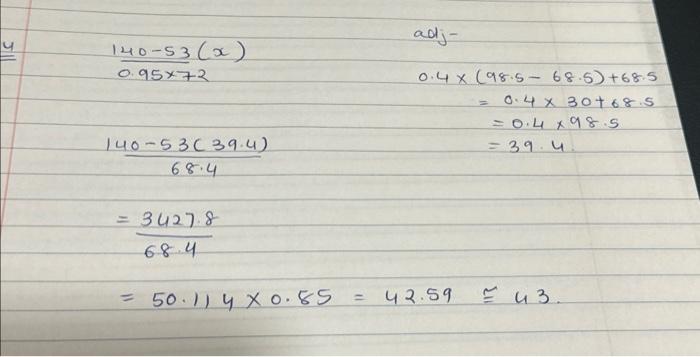 4
140-53(x)
0.95×72
140-53(39.4)
68.4
= 3427.8
68.4
= 50.114 × 0.85 = 42.59 ≅ 43.
adj-
0.4 × (98.5 - 68.5) + 68.5
= 0.4 × 30 + 68.5
= 0.4 × 98.5
= 39.4.